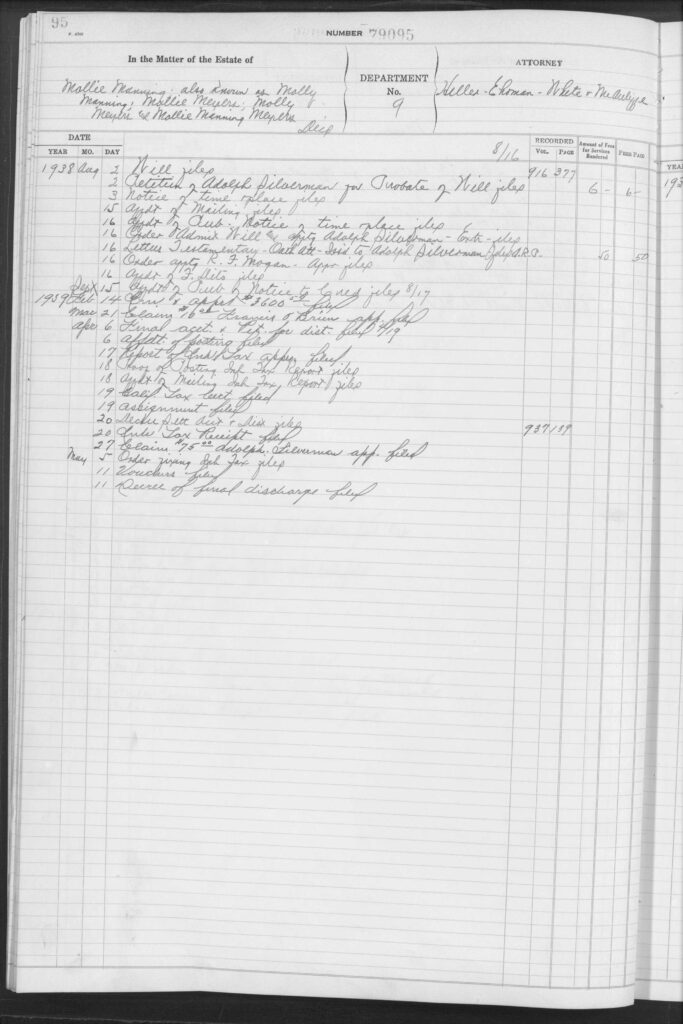 95
NUMBER 79095
In the Matter of the Estate of
Mollie Manning; also known as Molly
Manning; Mollie Meyers; Molly
Meyers & Mollie Manning Meyers
DEPARTMENT
No.
9
ATTORNEY
Heller - Ehrman - White & McAuliffe
DATE
YEAR MO. DAY
8/16
RECORDED
VOL. PAGE
Amount of Fees for Services Rendered
FEES PAID
1938 Aug 2 Will filed 916 377
2 Petition of Adolph Silverman for Probate of Will filed 6- 6-
3 Notice of time & place filed
15 Affdt of Mailing filed
16 Affdt of Pub. Notice of time & place filed
16 Order Admit Will & apptg Adolph Silverman - Extr. filed
16 Letters Testamentary - Oath Att - Issd to Adolph Silverman 50 50
16 Order apptg R. F. Mogan - Appr filed
16 Affdt of filed
Sept 15 Affdt of Pub of Notice to Cred filed 8/17
1939 Feb 14 Inv & apprt $3600.00 filed
Mar 21 Claim $16.00 Francis O'Brien app. filed
Apr 6 Final acct. & Pet. for dist. filed 4/19
6 Affdt. of posting filed
17 Report of Inh Tax appsr filed
18 Proof of Posting Inh Tax Report filed
18 Affdt of Mailing Inh Tax Report filed
19 Tax filed
19 Assignment filed
20 Decree Sett acct & Dist filed 937 139
20 Inh Tax Receipt filed
27 Claim $75.00 Adolph Silverman app. filed
May 5 Order fixing Inh Tax filed
11 Vouchers filed
11 Decree of final discharge filed